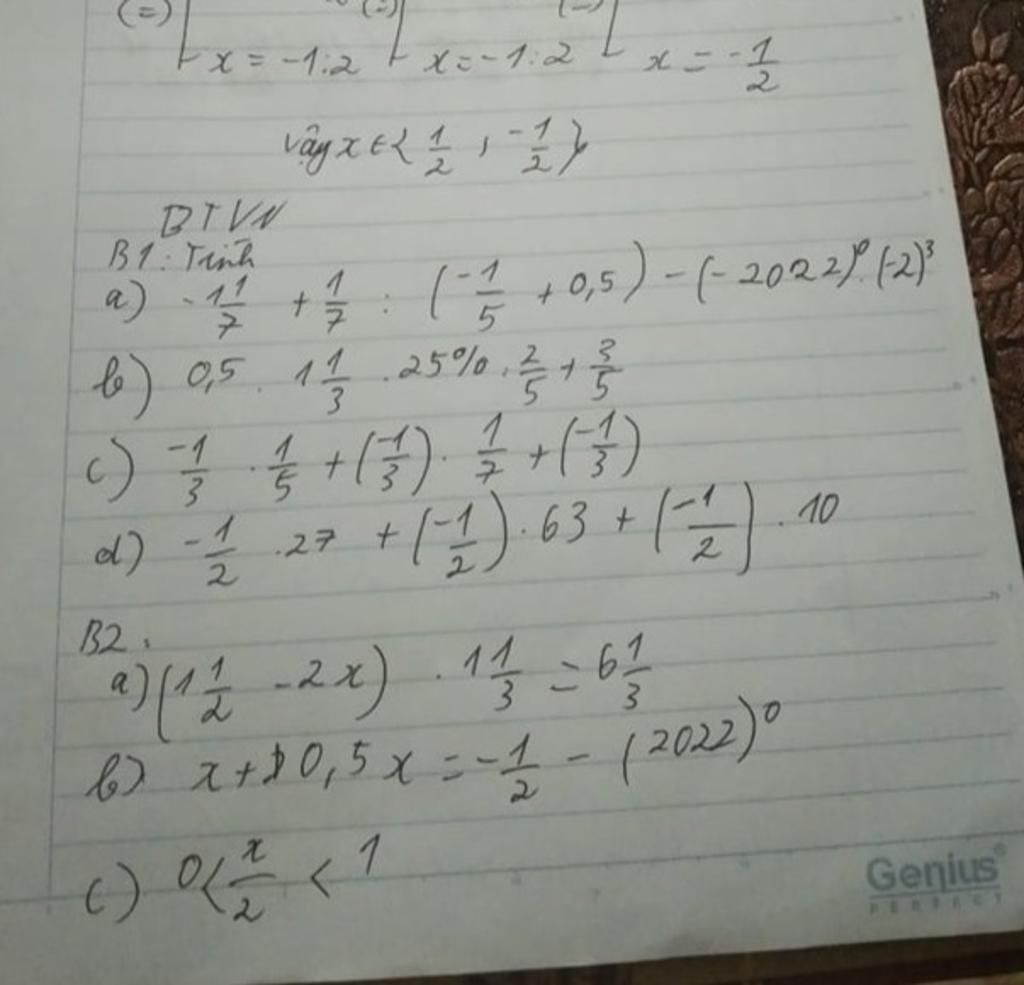 (=) (=) (=)
x = -1:2 x = -1:2 x = -1/2
Vậy x ∈ { 1/2 ; -1/2 }
BTVN
B1: Tính
a) -1 1/7 + 1/7 : (-1/5 + 0,5) - (-2022)^0 . (-2)^3
b) 0,5 . 1 1/3 . 25% . 2/5 + 3/5
c) -1/3 . 1/5 + (-1/3) . 1/7 + (-1/3)
d) -1/2 . 27 + (-1/2) . 63 + (-1/2) . 10
B2:
a) (1 1/2 - 2x) . 1 1/3 = 6 1/3
b) x + 0,5x = -1/2 - (2022)^0
c) 0 < x/2 < 1
Genius
PERFECT